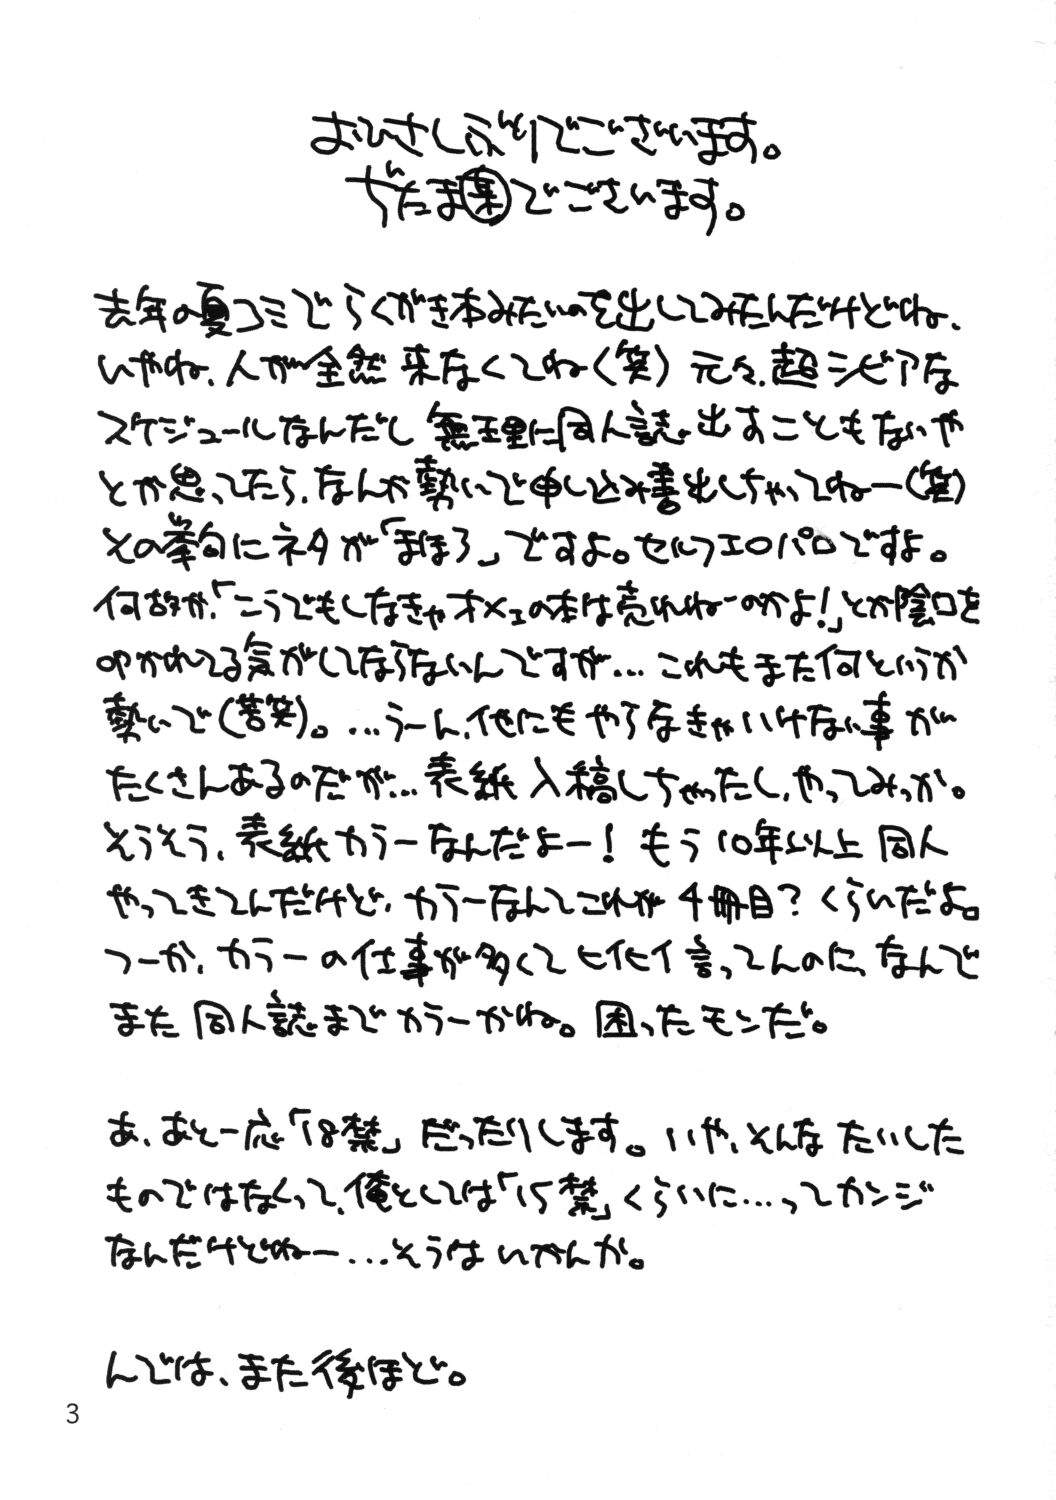 おひさしぶりでございます。
ぢたま㊣でございます。
去年の夏コミでらくがき本みたいのを出してみたんだけどね、
いやね、人が全然来なくてね(笑) 元々、超シビアな
スケジュールなんだし 無理に同人誌出すこともないや
とか思ってたら、なんか勢いで申し込み書出しちゃってねー(笑)
その挙句にネタが「まほろ」ですよ。セルフエロパロですよ。
何故か、「こうでもしなきゃオメェの本は売れねーのかよ!」とか陰口を
叩かれてる気がしてならないんですが… これもまた何というか
勢いで(苦笑)。…うーん、他にもやらなきゃいけない事が
たくさんあるのだが… 表紙入稿しちゃったし、やってみっか。
そうそう、表紙カラーなんだよー! もう10年以上 同人
やってきてんだけど、カラーなんてこれが4冊目?くらいだよ。
つーか、カラーの仕事が多くてヒイヒイ言ってんのに、なんで
また 同人誌までカラーかね。困ったモンだ。
あ、あと一応「18禁」だったりします。いや、そんな たいした
ものではなくって、俺としては「15禁」くらいに…ってカンジ
なんだけどねー…そうはいかんか。
んでは、また後ほど。
3